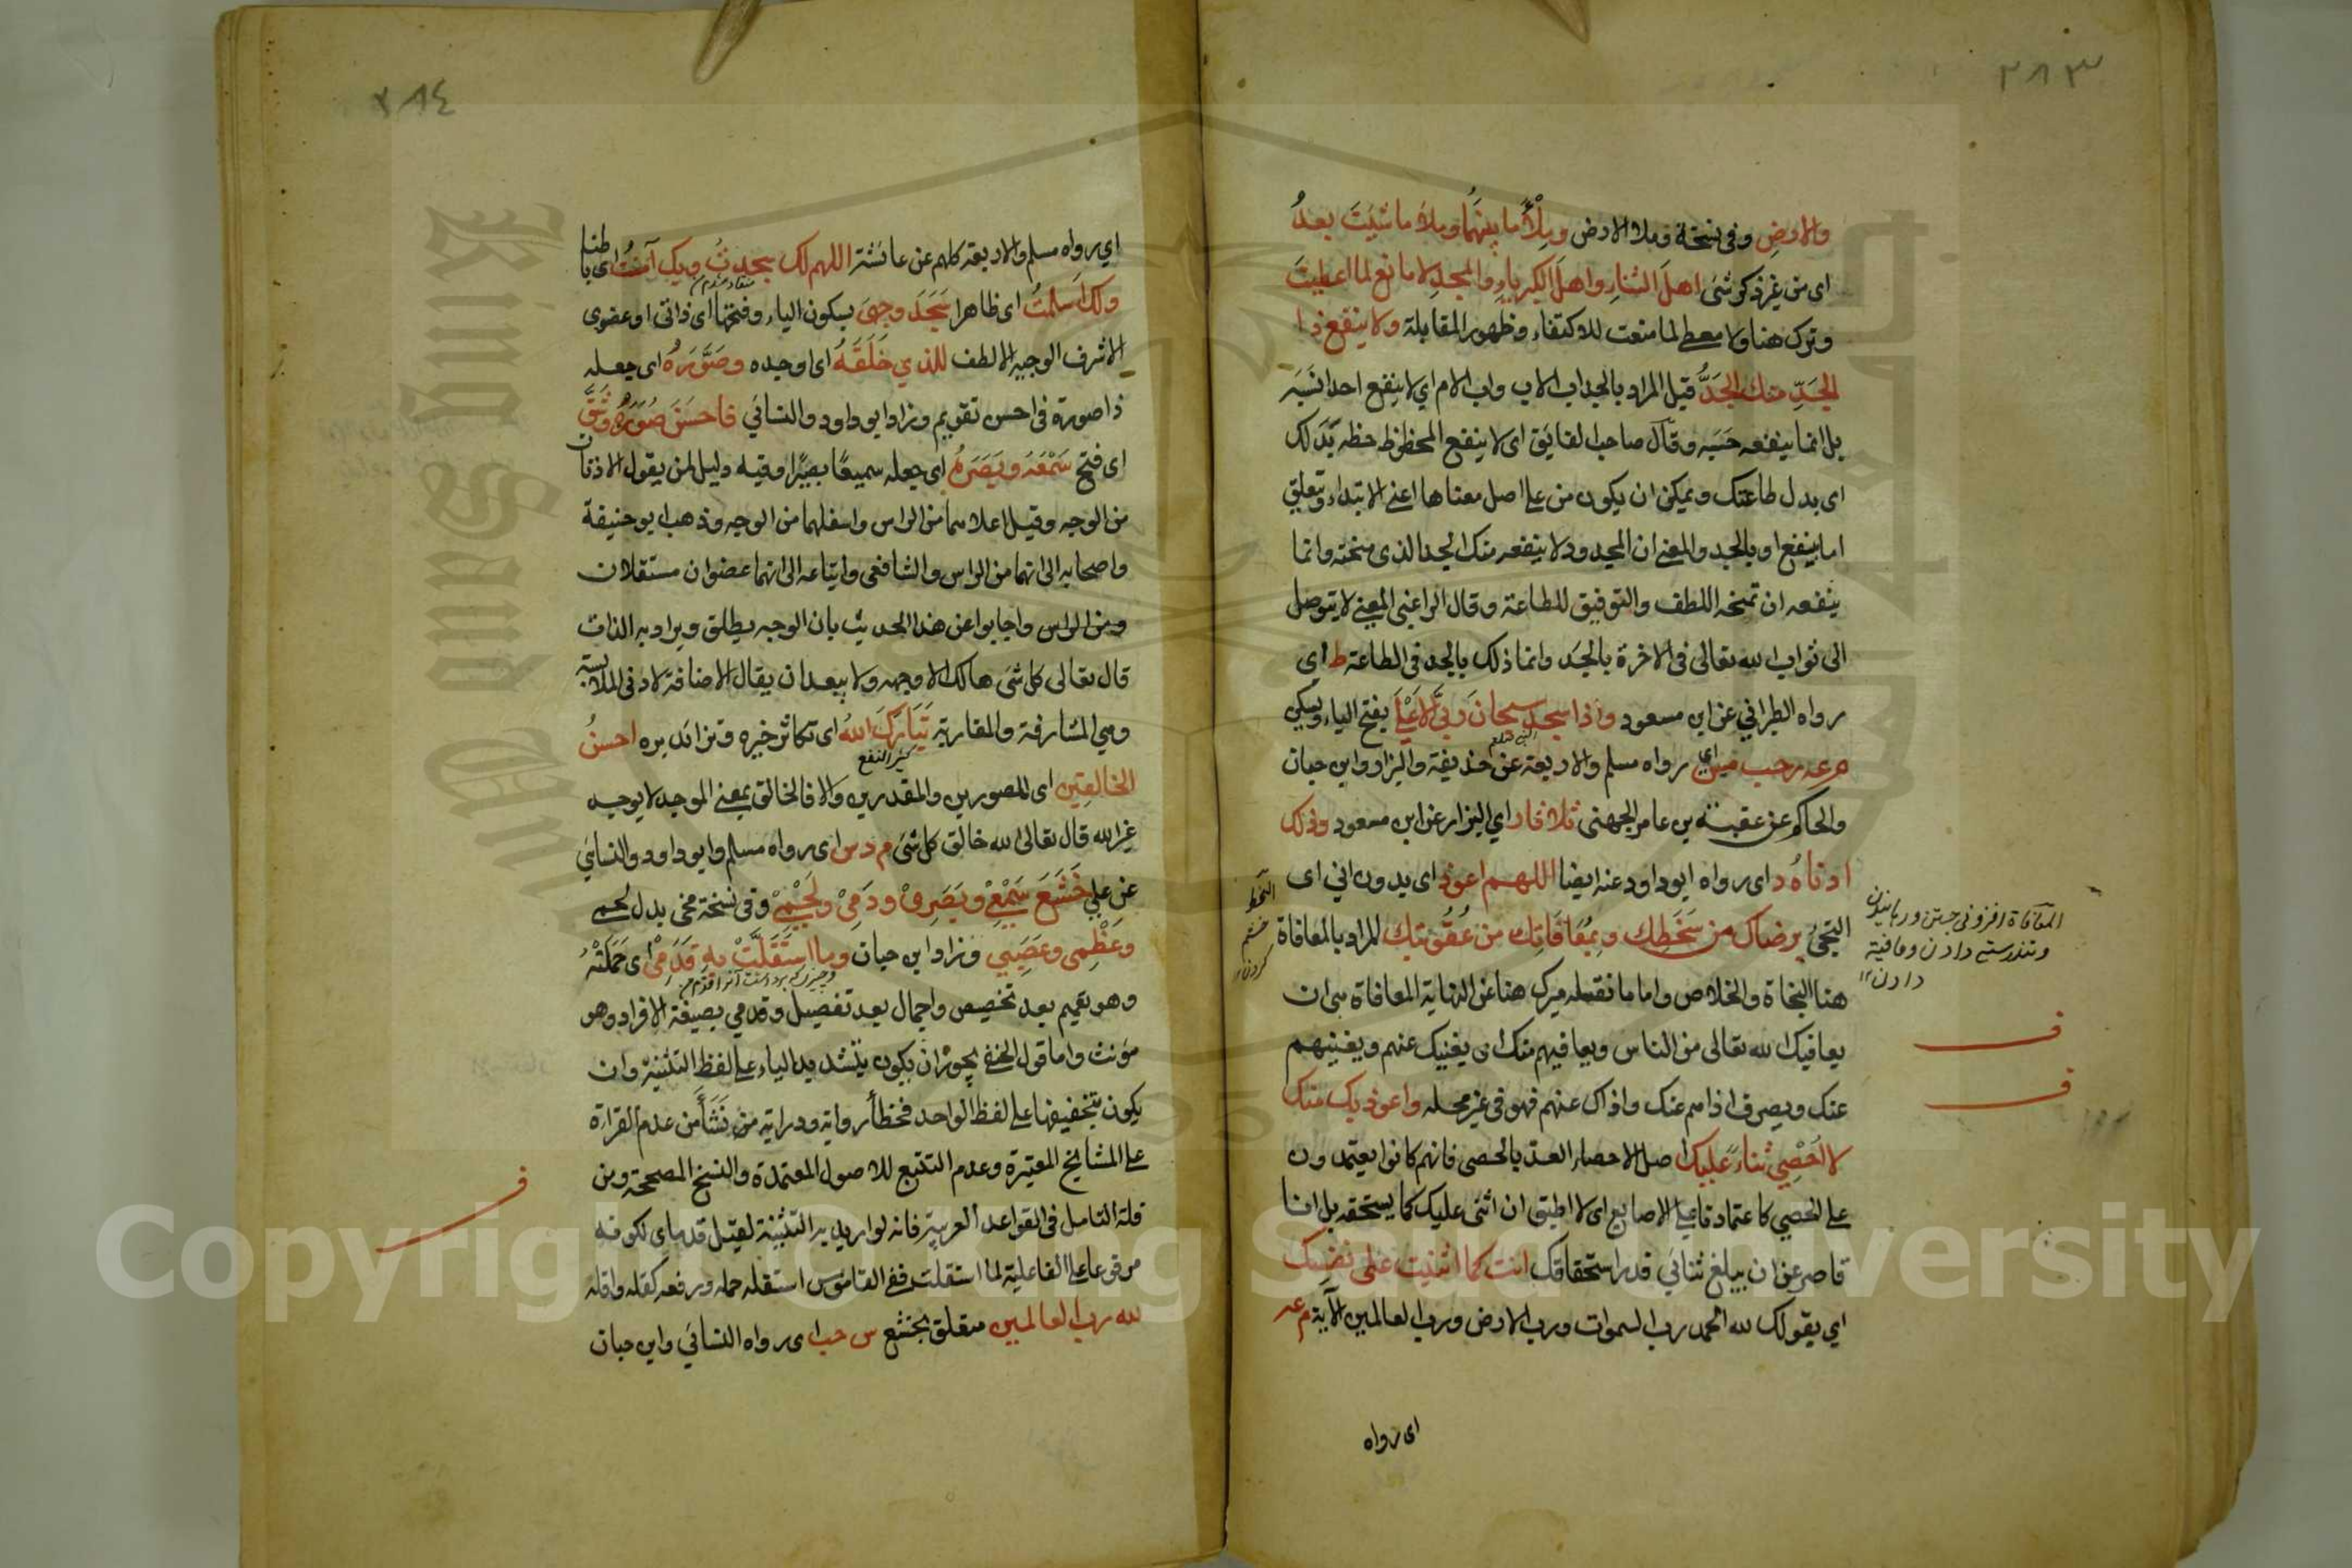 ٢٨٣
والارضِ وفى نسخة وملا الارض ومِلْأَ ما بينهُما وملأ ما شئتَ بعدُ
اى من غير ذكر شئ اهلَ الثناءِ واهلَ الكبرياءِ والمجدِ لا مانع لما اعطيتَ
وترك هنا ولا معطى لما منعت للاكتفاء وظهور المقابلة ولا ينفع ذا
الجَدِّ منك الجَدُّ قيل المراد بالجد اب الاب واب الام اي لا ينفع احدا نسَبَه
بل انما ينفعه حسَبه وقال صاحب الفايق اى لا ينفع المحظوظ حظه بَدَلك
اى بدل طاعتك ويمكن ان يكون من على اصل معناها اعنى الابتداء وتعلق
اما بينفع او بالجد والمعنى ان المجدود لا ينفعه منك الجد الذى منحته وانما
ينفعه ان تمنحه اللطف والتوفيق للطاعة وقال الراغب المعنى لا يتوصل
الى ثواب الله تعالى فى الاخرة بالجَد وانما ذلك بالجد فى الطاعة ط اى
رواه الطبرانى عن ابن مسعود واذا سجد سبحانَ ربيَ الاعْلَى بفتح الياء ويسكن
م عه ر حب مس اي رواه مسلم والاربعة عن حذيفة والبزار وابن حبان
والحاكم عن عقبة بن عامر الجهنى ثلاثا ر اي البزار عن ابن مسعود وذلك
ادناهُ د اى رواه ابوداود عنه ايضا اللهم اعوذ اى بدون انى اى
التجئ برضاك من سَخَطِك وبِمُعَافَاتِك من عُقُوبتِك المراد بالمعافاة
السخط
خشم
كردن
المعافاة افزونى جستن ورهانيدن
وتندرستى دادن وعافية
دادن
هنا النجاة والخلاص واما ما نقله ميرك هنا عن النهاية المعافاة هى ان
يعافيك الله تعالى من الناس ويعافيهم منك اى يغنيك عنهم ويغنيهم
عنك ويصرف اذاهم عنك واذاك عنهم فهو فى غير محله واعوذ بك منك
لا اُحْصِي ثناءً عليك اصل الاحصاء العد بالحصى فانهم كانوا يعتمدون
على الحصى كاعتمادنا على الاصابع اى لا اطيق ان اثنى عليك كما يستحقه بل انا
قاصر عن ان يبلغ ثنائى قدر استحقاقك انت كما اثنيت على نفسك
اي بقولك لله الحمد رب السموات ورب الارض ورب العالمين الآية م عه
اى رواه
٢٨٤
اي رواه مسلم والاربعة كلهم عن عائشة اللهم لك سجدتُ وبك آمنتُ اى باطنا
ولك اَسلمتُ اى ظاهرا سَجَدَ وجهيَ بسكون الياء وفتحها اى ذاتى او عضوى
الاشرف الوجيه الالطف للذي خَلَقَهُ اى اوجده وصَوَّرَهُ اى جعله
ذا صورة فى احسن تقويم وزاد ابو داود والنسائي فاحسَنَ صُوَرَهُ وشَقَّ
اى فتح سَمْعَه وبَصَرَهُ اى جعله سميعًا بصيرًا وفيه دليل لمن يقول الاذنان
من الوجه وقيل اعلاهما من الراس واسفلهما من الوجه وذهب ابو حنيفة
واصحابه الى انهما من الراس والشافعى واتباعه الى انهما عضوان مستقلان
ومن الراس واجابوا عن هذا الحديث بان الوجه يطلق ويراد به الذات
قال تعالى كل شئ هالك الا وجهه ولا يبعد ان يقال الاضافة لادنى الملابسة
وهي المشارفة والمقاربة تَبَارَكَ اللهُ اى تكاثر خيره وتزايد بره احسنُ
كثير النفع
الخالقِين اى المصورين والمقدرين والا فالخالق بمعنى الموجد لا يوجد
غير الله قال تعالى الله خالق كل شئ م د س اى رواه مسلم وابو داود والنسائي
عن علي خَشَعَ سَمْعِيْ وبَصَرِيْ ودَمِيْ ولَحْمِيْ وفى نسخة مخى بدل لحمى
وعَظْمِى وعَصَبِي وزاد ابن حبان وما استَقَلَّتْ بِهِ قَدَمِيْ اى حَمَلتْهُ
وهو تعميم بعد تخصيص واجمال بعد تفصيل وقدمي بصيغة الافراد وهو
مؤنث واما قول الحنفى يجوز ان يكون بتشديد الياء على لفظ التثنية وان
يكون بتخفيفها على لفظ الواحد فخطأ رواية ودراية من نَشَأَ من عدم القراءة
على المشايخ المعتبرة وعدم التتبع للاصول المعتمدة والنسخ المصححة ومن
قلة التامل فى القواعد العربية فانه لو اريد به التثنية لقيل قدماى لكونه
مرفوعا على الفاعلية لما استقلت ففى القاموس استقله حمله ورفعه كقله واقله
لله رب العالمين متعلق بخشع س حب اى رواه النسائى وابن حبان
Copyright © King Saud University
King Saud Un